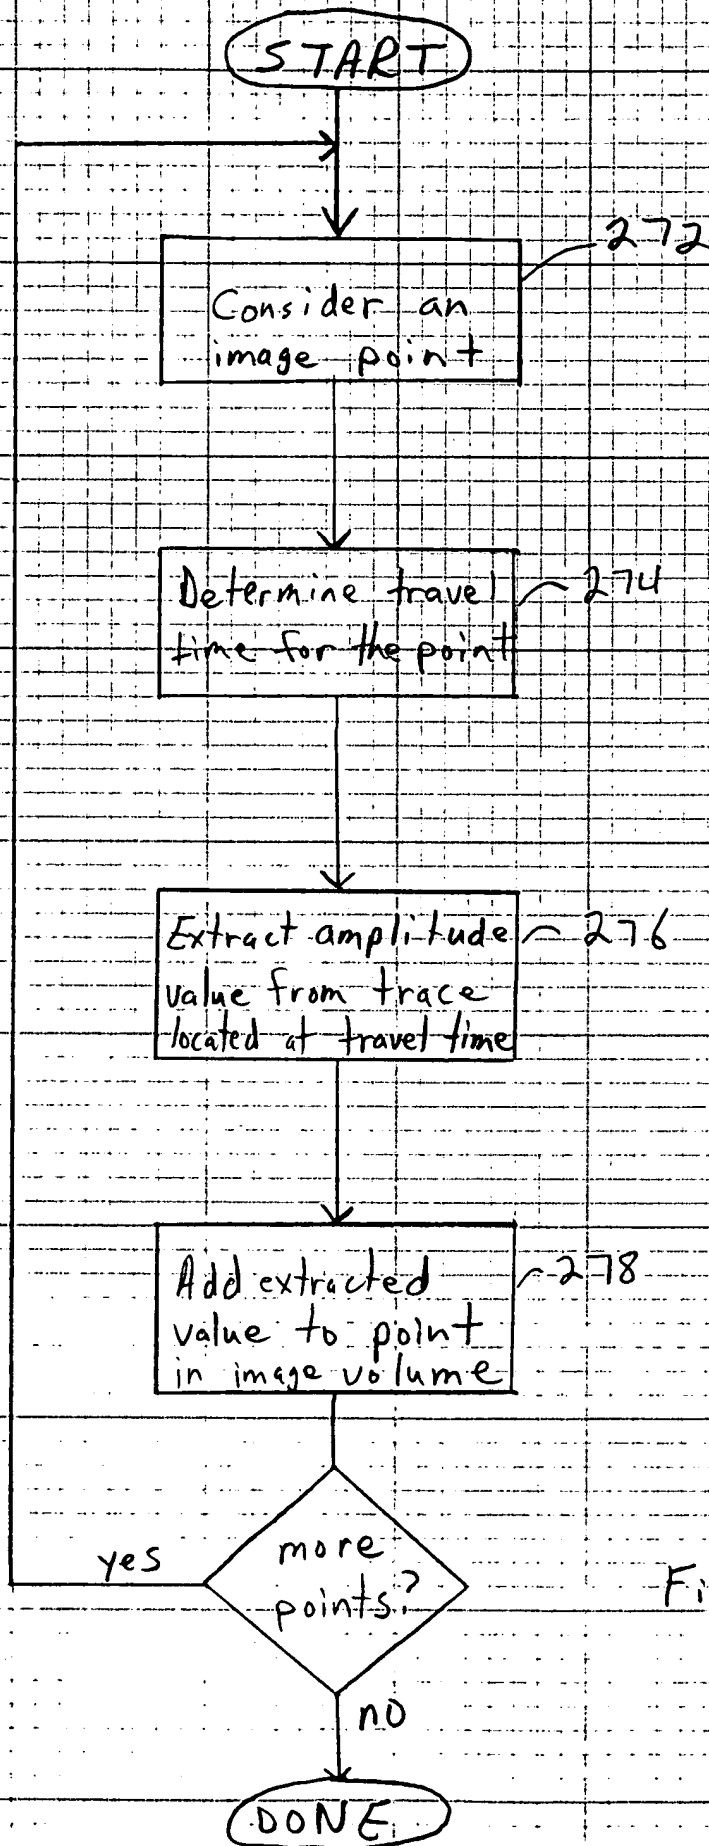 START
272
Consider an
image point
Determine travel
274
time for the point
Extract amplitude
276
value from trace
located at travel time
Add extracted
278
value to point
in image volume
more
points?
yes
no
DONE